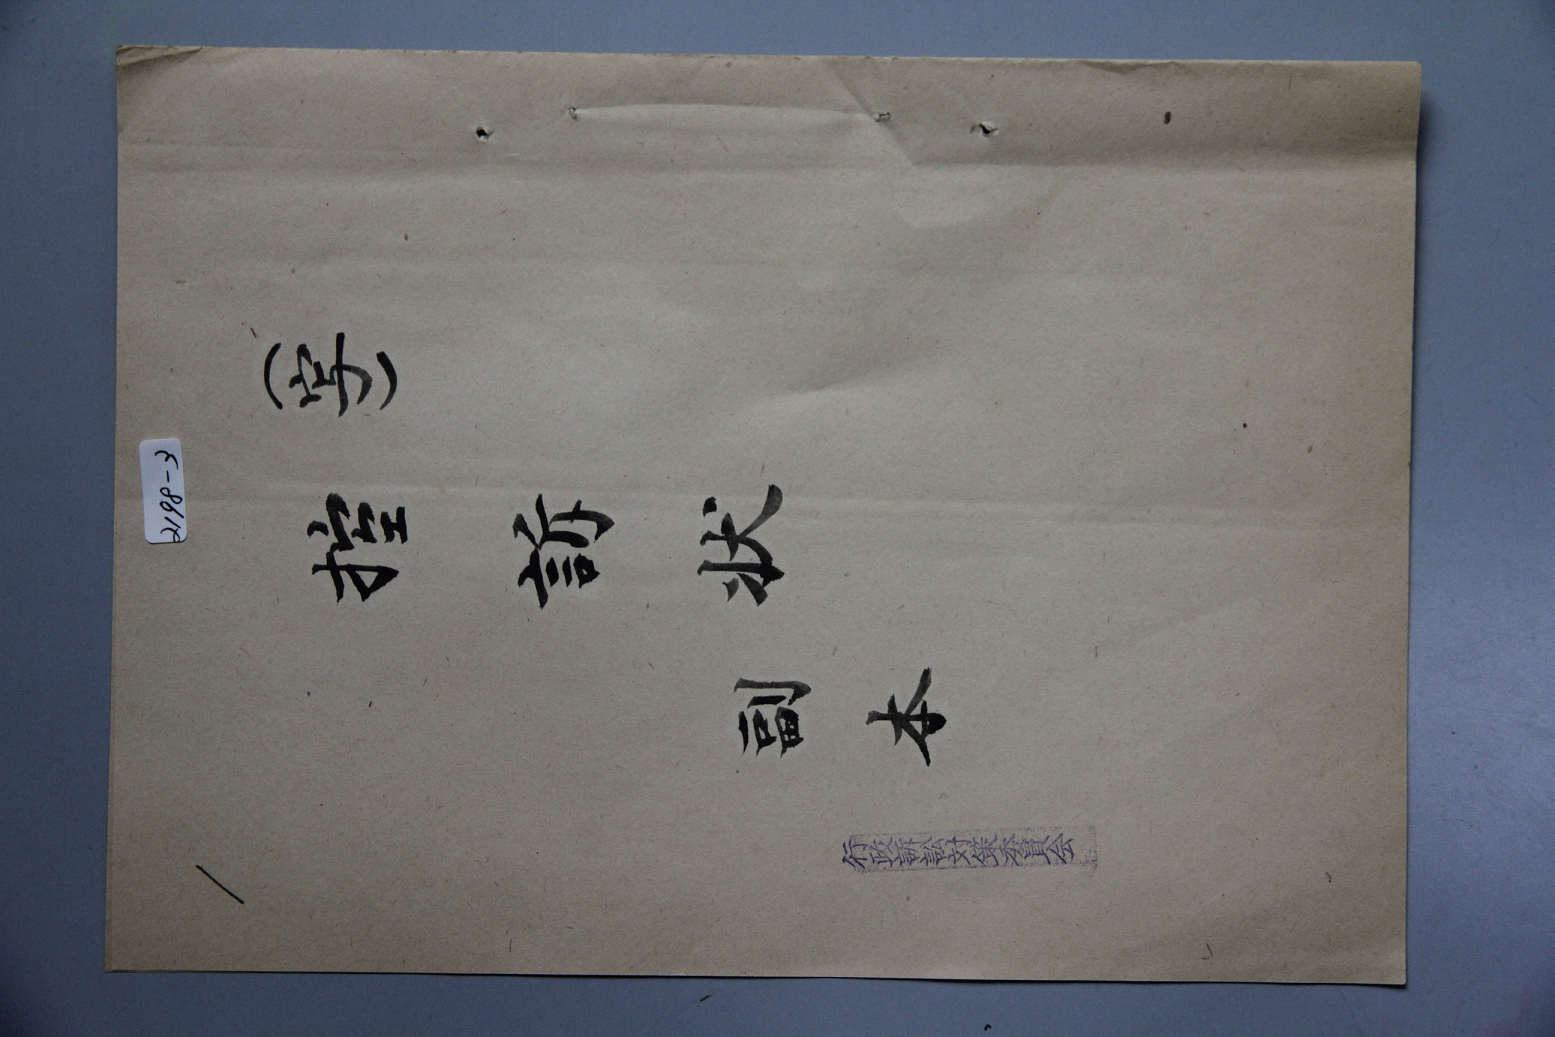 (写)
控訴状
副本
行政訴訟対策委員会
2198-3